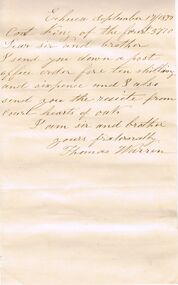 Echuca September 17/1877
Court King of the forest 3770
Dear sir and brother
I send you down a post
office order fore ten shillings
and sixpence and I also
send you the reseite from
Court hearts of oak
I am sir and brother
yours fratornally
Thomas Warren